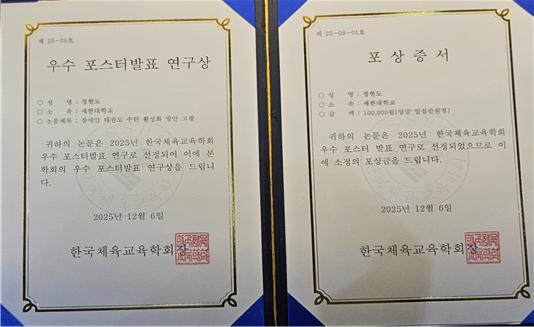 제 25-09호
우수 포스터발표 연구상
○ 성 명 : 정현도
○ 소 속 : 세한대학교
○ 논문제목 : 장애인 태권도 수련 활성화 방안 고찰
귀하의 논문은 2025년 한국체육교육학회
우수 포스터발표 연구로 선정되어 이에 본
학회의 우수 포스터발표 연구상을 드립니
다.
2025년 12월 6일
한국체육교육학회장
제 25-09-01호
포상증서
○ 성 명 : 정현도
○ 소 속 : 세한대학교
○ 금 액 : 100,000원(일금 일십만원정)
귀하의 논문은 2025년 한국체육교육학회
우수 포스터 발표 연구로 선정되었으므로 이
에 소정의 포상금을 드립니다.
2025년 12월 6일
한국체육교육학회장